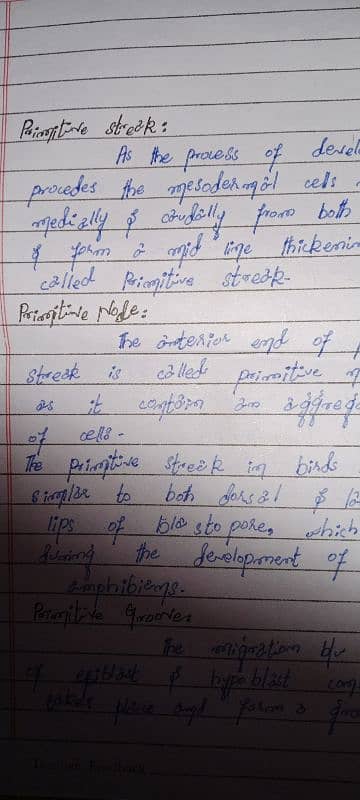 Primitive streak:
As the process of devel
procedes the mesodermal cells
medially & caudally from both
& form a mid line thickenin
called Primitive streak.
Primitive Node:
The anterior end of
streak is called primitive n
as it contain an aggreg
of cells.
The primitive streak in birds
similar to both dorsal & la
lips of blastopore, which
during the development of
amphibiens.
Primitive Groove:
The migration b/w
of epiblast & hypoblast com
takes place and form a gro